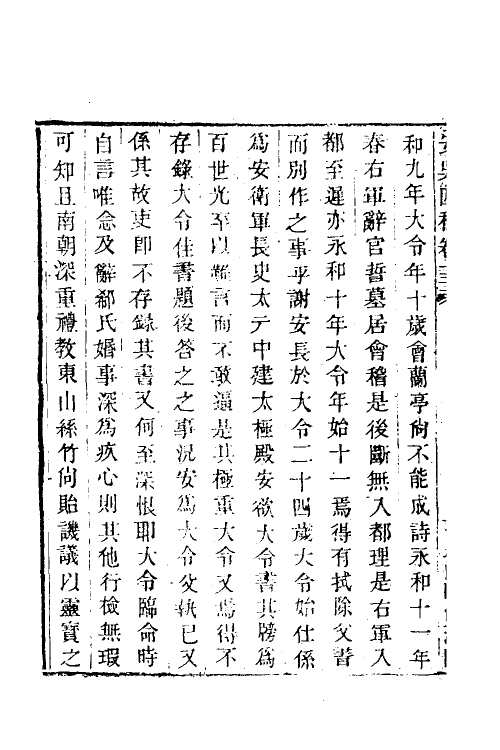 和九年大令年十歲會蘭亭尙不能成詩永和十一年
春右軍辭官誓墓居會稽是後斷無入都理是右軍入
都至遲亦永和十年大令年始十一焉得有拭除父書
而別作之事乎謝安長於大令二十四歲大令始仕係
爲安衛軍長史太元中建太極殿安欲大令書其牓爲
百世光至以難言而不敢逼是其極重大令又焉得不
存錄大令佳書題後答之之事況安爲大令父執已又
係其故吏卽不存錄其書又何至深恨耶大令臨命時
自言唯念及辭郗氏婚事深爲疚心則其他行檢無瑕
可知且南朝深重禮教東山絲竹尙貽譏議以靈寶之